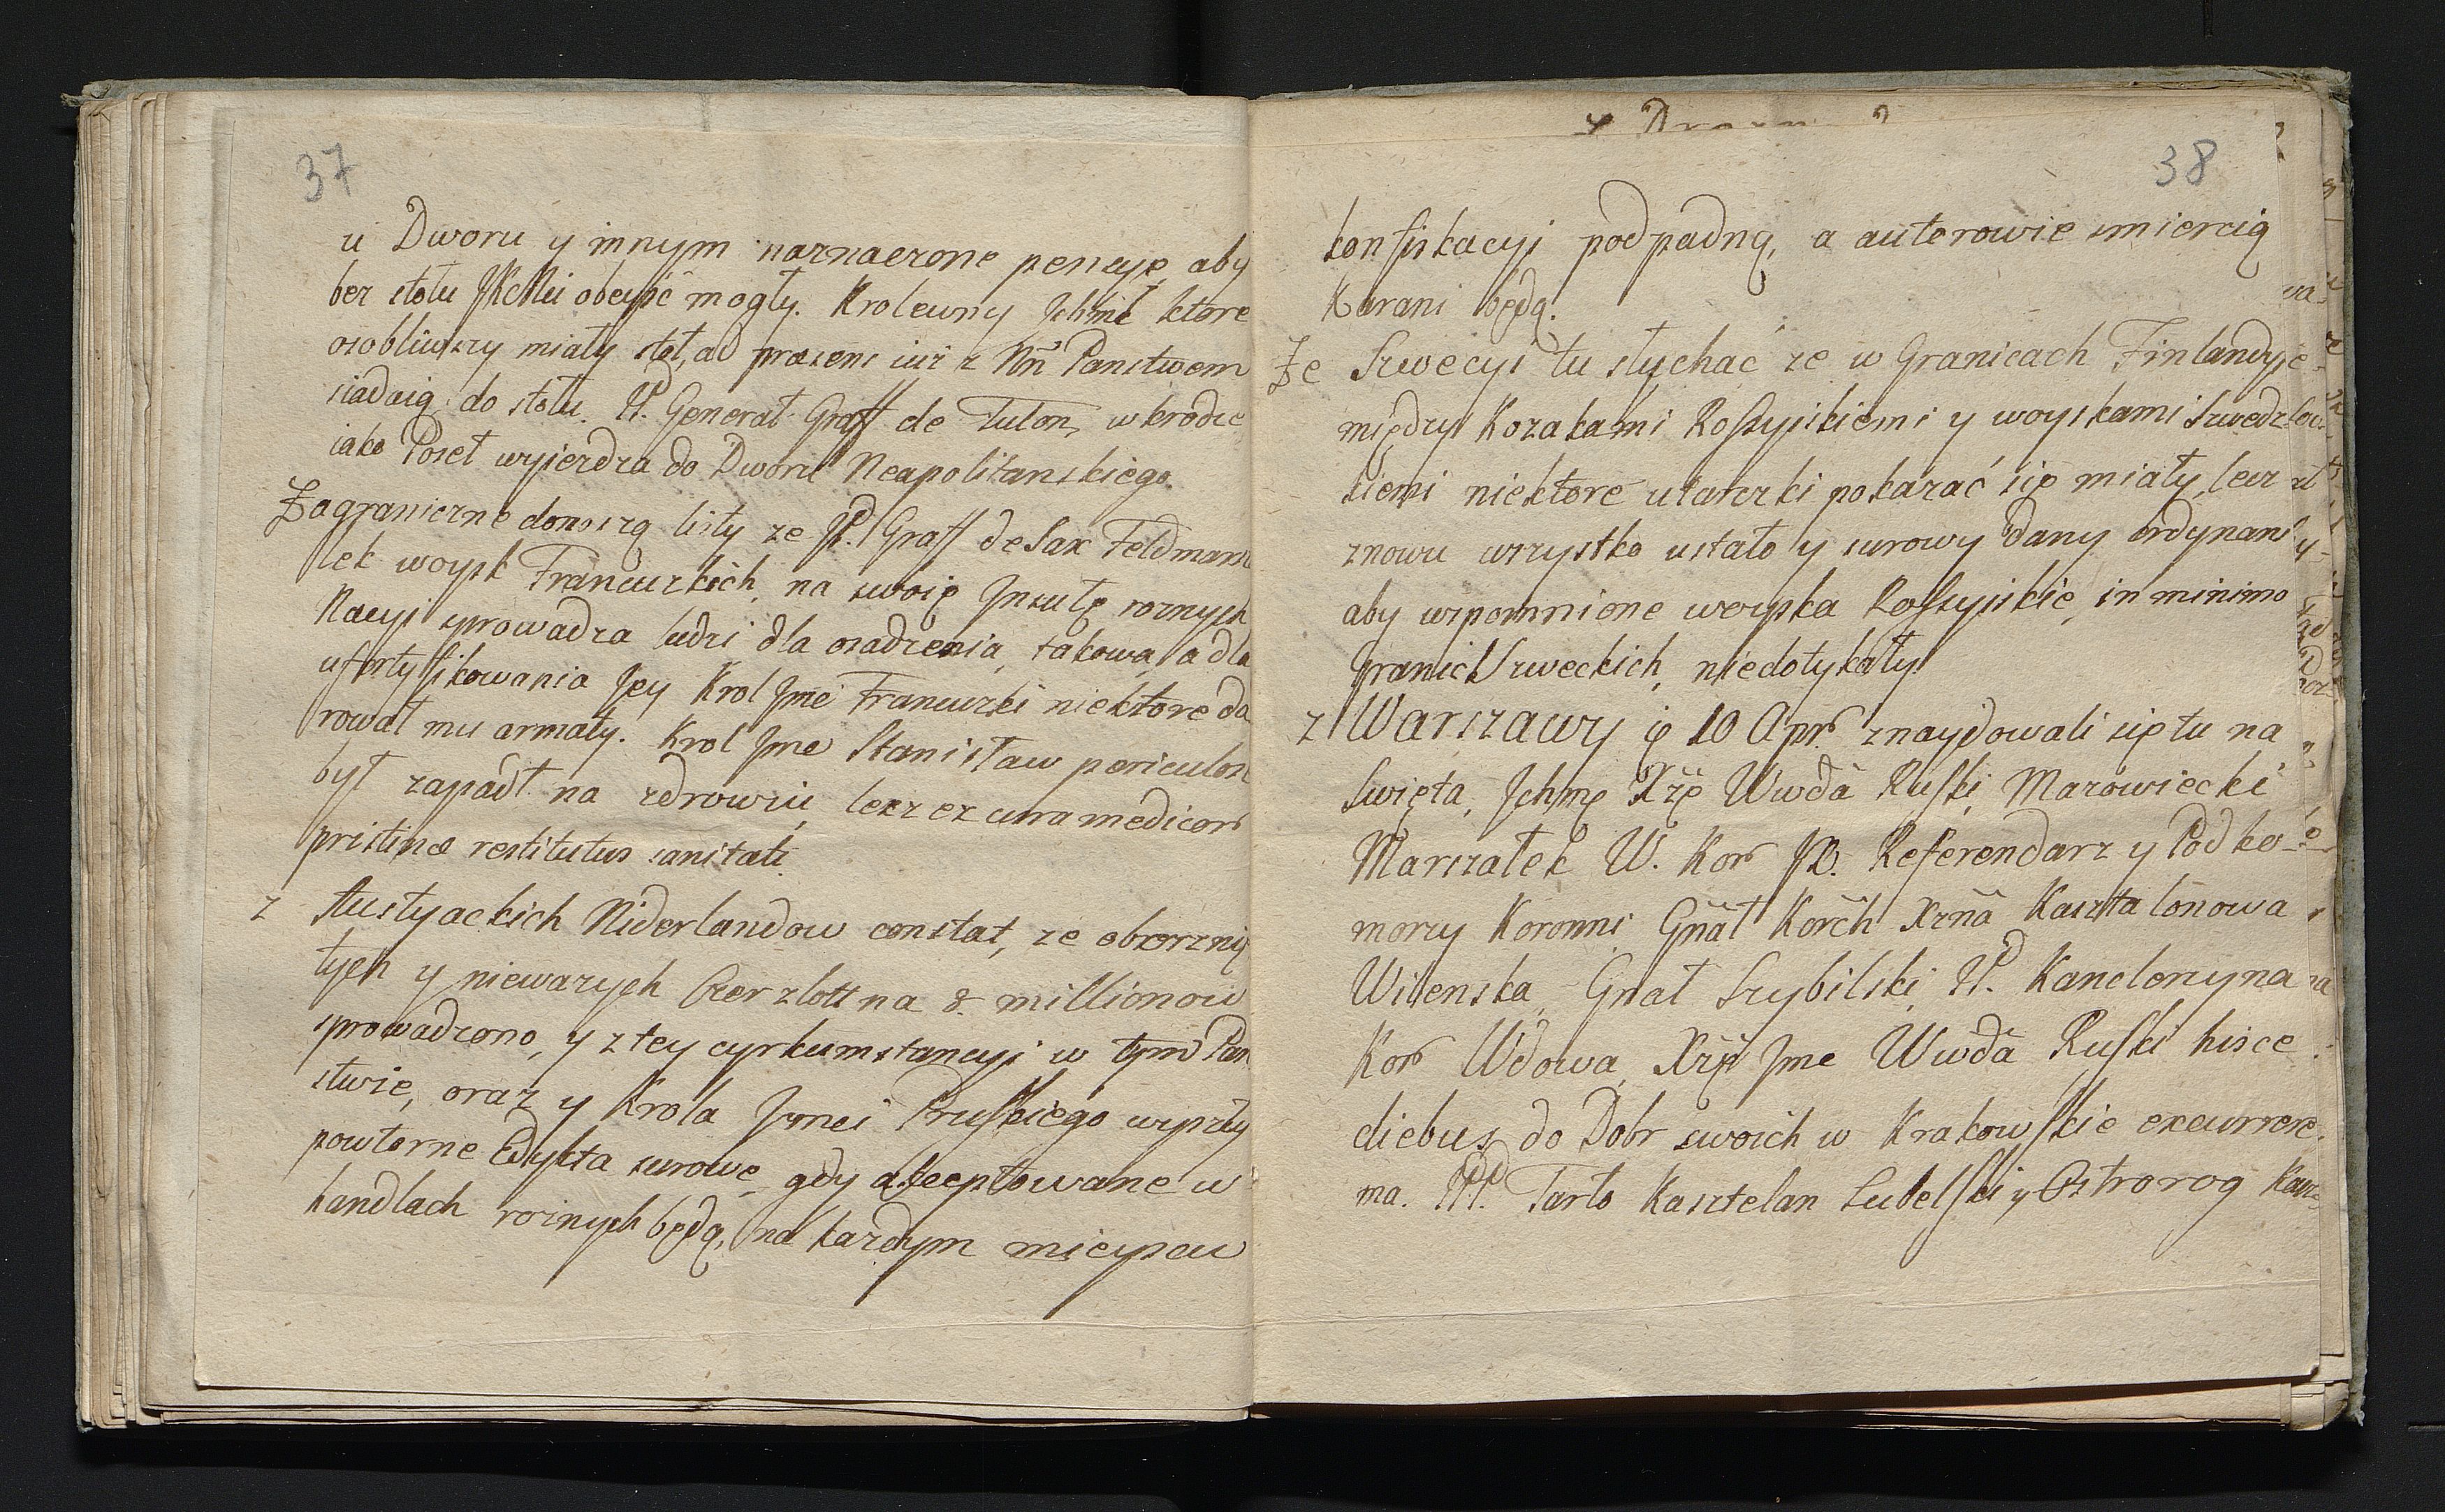 37
u Dworu y innym naznaczone pencye, aby
bez stołu JKMci obeyść mogły. Krolewny Ichmć ktore
osobliwszy miały stoł, ad præsens iuż z Nñ Panstwem
siadaią do stołu. JP. Generał Graff de Tulon, wkrodce
iako Poseł wyiezdza do Dworu Neapolitanskiego.
Zagraniczne donoszą listy ze JP. Graff de Sax Feldmarsz
łek woysk Francuzkich, na swoię Insułę roznych
Nacyi sprowadza ludzi dla osadzenia, takową, a dla
ufortyfikowania Jey Krol Jmć Francuzki niektore da
rował mu armaty. Krol Jme Stanisław periculose
był zapadł na zdrowiu, lecz ex cura medicor
pristinæ restitutus sanitati.
z Austyackich Niderlandow constat, ze obrzrznię
tych y niewaznych Czer złott na 8. millionow
sprowadzono, y z tey cyrkumstancyi w tym Pan
stwie, oraz y Krola Jmci Pruskiego wyszły
powtorne Edykta surowe gdy akceptowane w
handlach roznych będą, na kazdym mieyscu
38
konfiskacyi podpadną, a autorowie smiercią
Karani będą.
Ze Szwecyi tu słychać ze w Granicach Finlandyi
między Kozakami Rossyiskiemi y woyskami Szwedz
kiemi niektore utarczki pokazać się miały, lecz
znowu wszystko ustało y surowy dany ordynans
aby wspomnione woyska Rossyiskie, in minimo
Granic Szweckich, niedotykały.
z Warszawy 10 Apr. znaydowali się tu na
Swięta, Ichmę Xże Wwda Ruski, Mazowiecki
Marszałek W. Kor JP. Referendarz y Podko-
morzy Koronni Gñał Korčh Xzñа Kasztalonowa
Wilenska, Gnał Szybilski, JP. Kanclerzyna
Kor Wdowa, Xżę Jme Wwda Ruski hisce
diebus do Dobr swoich w Krakowskie excurrere
ma. JPP. Tarło Kasztelan Lubelski y Ostrorog Kasz